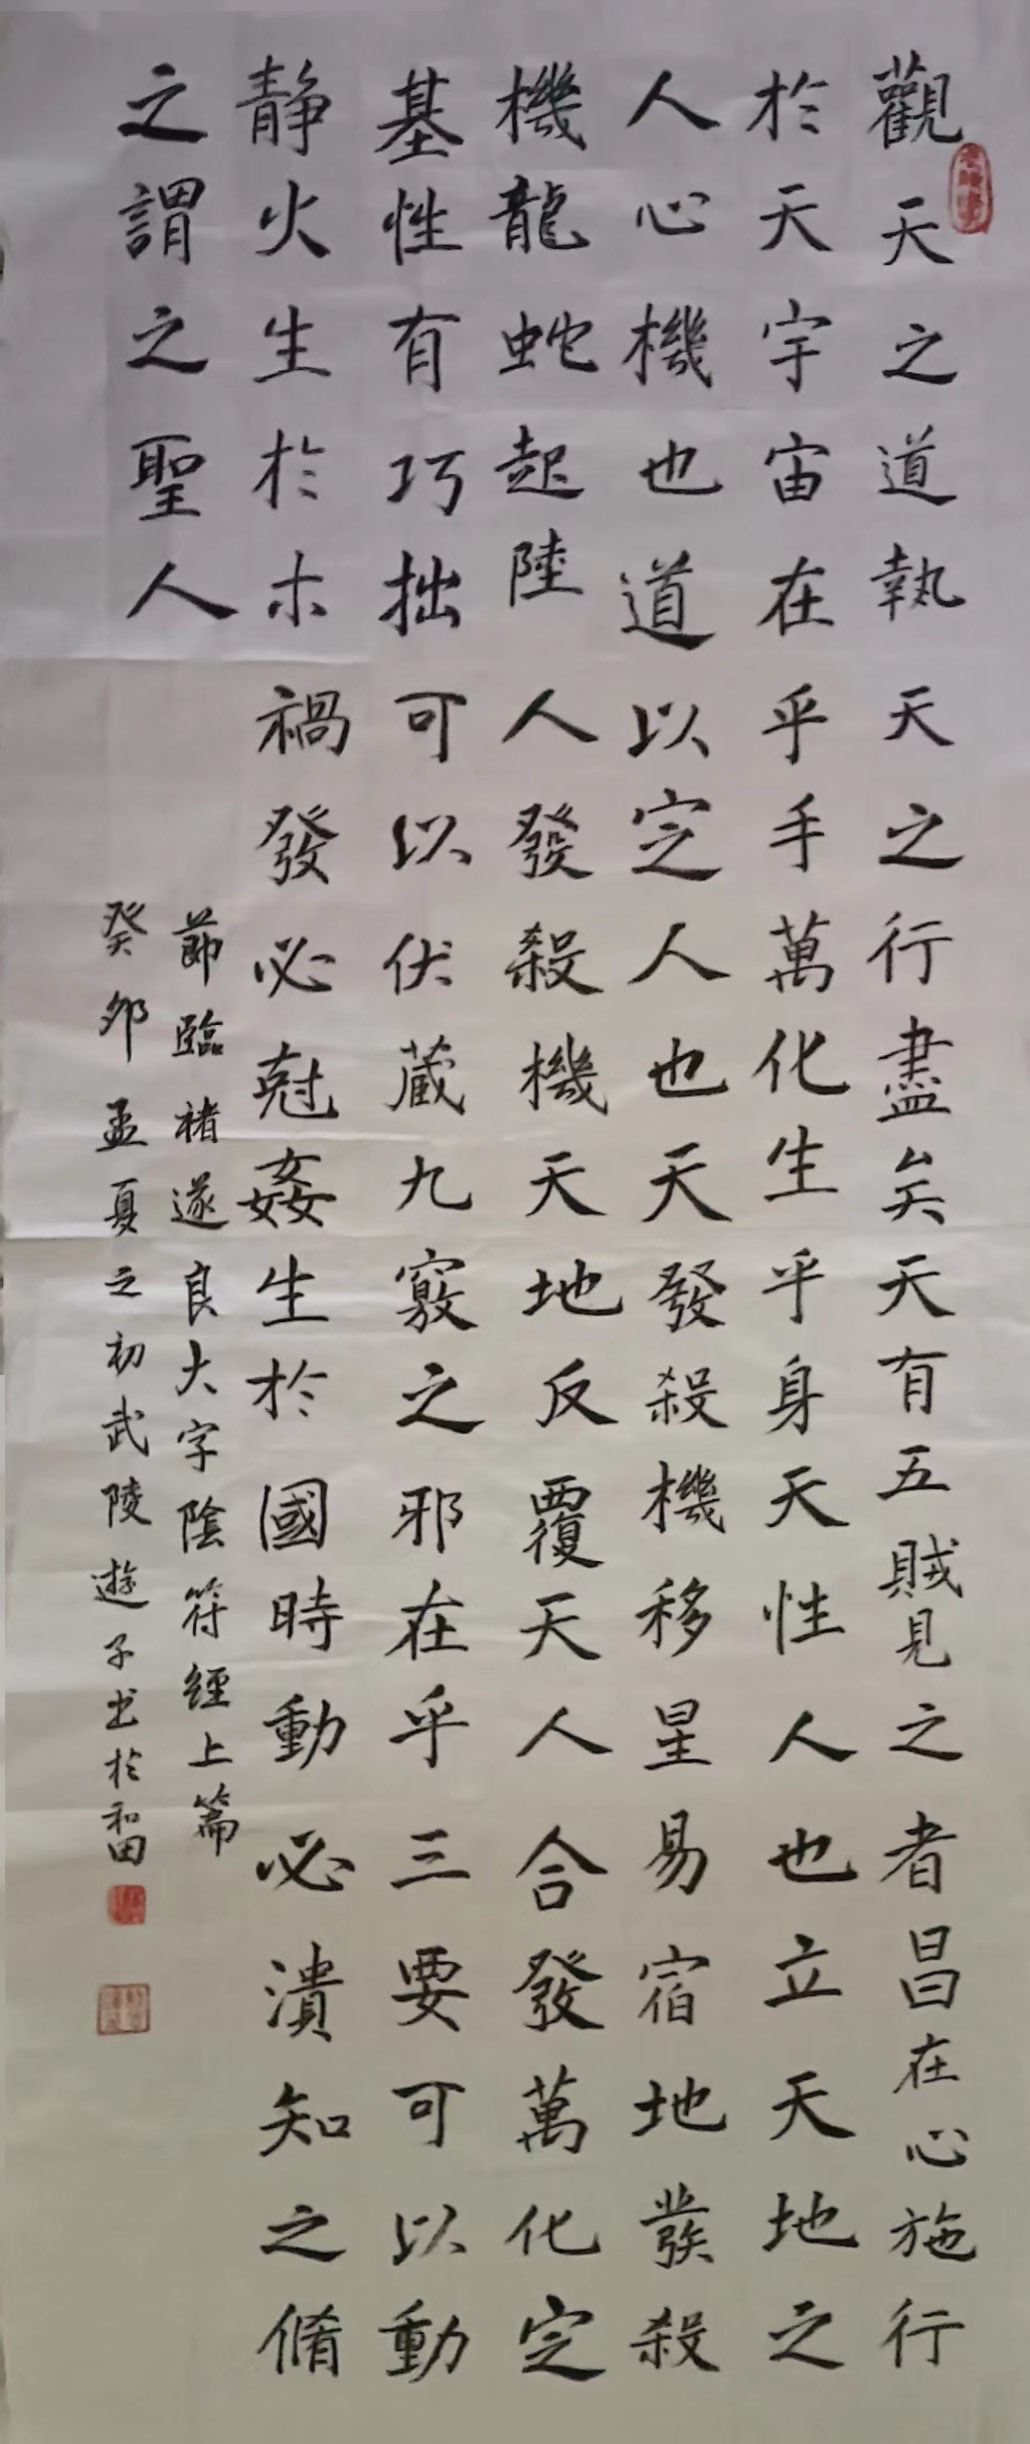 觀天之道執天之行盡矣天有五賊見之者昌在心施行
於天宇宙在乎手萬化生乎身天性人也立天地之
人心機也道以定人也天發殺機移星易宿地發殺
機龍蛇起陸人發殺機天地反覆天人合發萬化定
基性有巧拙可以伏藏九竅之邪在乎三要可以動
靜火生於木禍發必尅姦生於國時動必潰知之脩
之謂之聖人
節臨褚遂良大字陰符經上篇
癸卯孟夏之初武陵遊子书於和田